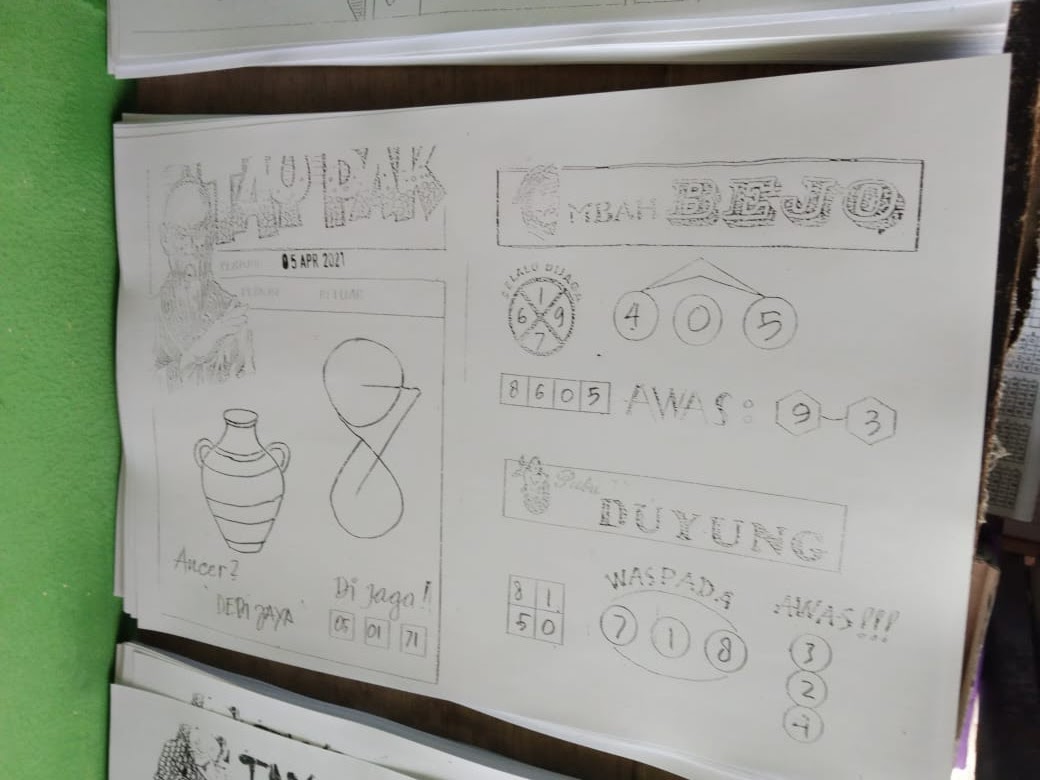 05 APR 2021
Ancer?
DEPI JAYA
Di jaga!!
05 01 71
MBAH BEJO
SELALU DIJAGA
1
6 9
7
4 0 5
8 6 0 5
AWAS:
9 - 3
Putri
DUYUNG
8 1
5 0
WASPADA
7 1 8
AWAS!!!
3
2
4